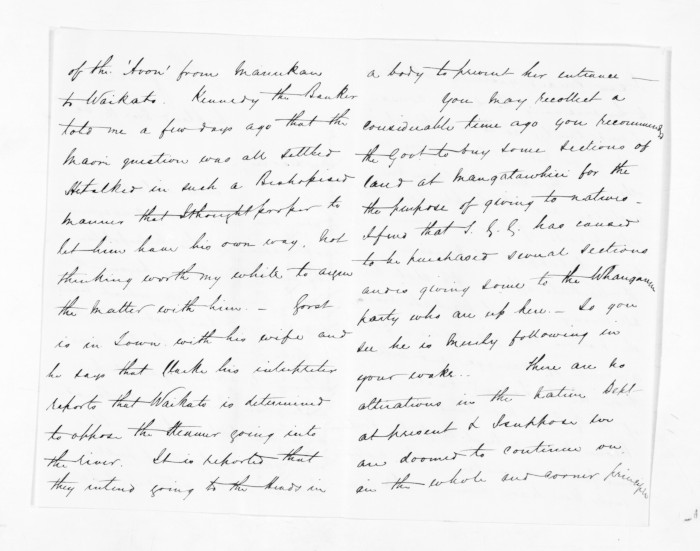 of the 'Avon' from Manukau
to Waikato. Kennedy the Banker
told me a few days ago that the
Maori question was all settled
He talked in such a Bishopised
manner that I thought proper to
let him have his own way, not
thinking worth my while to argue
the matter with him. — Gorst
is in Town with his wife and
he says that Clarke his interpreter
reports that Waikato is determined
to oppose the Steamer going into
the river. It is reported that
they intend going to the Heads in
a body to prevent her entrance —
You may recollect a
considerable time ago you recommended
the Govt to buy some sections of
land at Mangatawhiri for the
the purpose of giving to natives —
I find that S. G. G. has caused
to be purchased several sections
and is giving some to the Whanganui
party who are up here — So you
see he is merely following in
your wake.. There are no
alterations in the Native Dept
at present & I suppose we
are doomed to continue on
in the whole and sooner principle